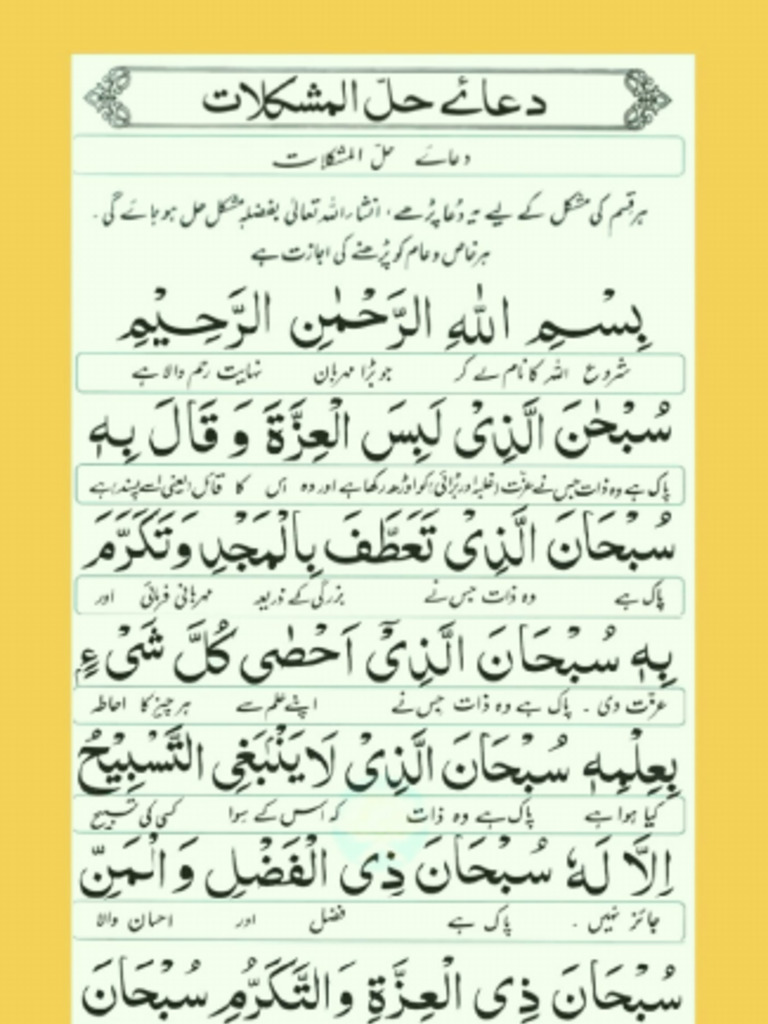 دعائے حلّ المشکلات
دعائے حلّ المشکلات
ہرقسم کی مشکل کے لیے یہ دُعا پڑھے، انشاء اللہ تعالیٰ بفضلہٖ مشکل حل ہو جائے گی۔
ہر خاص و عام کو پڑھنے کی اجازت ہے
بِسْمِ اللّٰهِ الرَّحْمٰنِ الرَّحِيْمِ
شروع اللہ کا نام لے کر جو بڑا مہربان نہایت رحم والا ہے
سُبْحٰنَ الَّذِىْ لَبِسَ الْعِزَّةَ وَ قَالَ بِهٖ
پاک ہے وہ ذات جس نے عزت (غلبہ اور بڑائی) کو اوڑھ رکھا ہے اور وہ اس کا قائل (یعنی اسے پسند) ہے
سُبْحَانَ الَّذِىْ تَعَطَّفَ بِالْمَجْدِ وَتَكَرَّمَ
پاک ہے وہ ذات جس نے بزرگی کے ذریعہ مہربانی فرمائی اور
بِهٖ سُبْحَانَ الَّذِىْٓ اَحْصٰى كُلَّ شَىْءٍ
عزت دی ۔ پاک ہے وہ ذات جس نے اپنے علم سے ہر چیز کا احاطہ
بِعِلْمِهٖ سُبْحَانَ الَّذِىْ لَا يَنْۢبَغِى التَّسْبِيْحُ
کیا ہوا ہے پاک ہے وہ ذات کہ اس کے سوا کسی کی تسبیح
اِلَّا لَهٗ سُبْحَانَ ذِى الْفَضْلِ وَ الْمَنِّ
جائز نہیں ۔ پاک ہے فضل اور احسان والا
سُبْحَانَ ذِى الْعِزَّةِ وَالتَّكَرُّمِ سُبْحَانَ